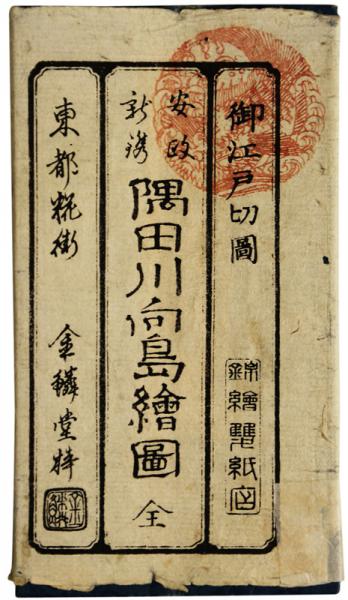 御江戸切圖
錦繪雙紙店
安政
新鐫
隅田川向島繪圖 全
東都糀街 金鱗堂梓